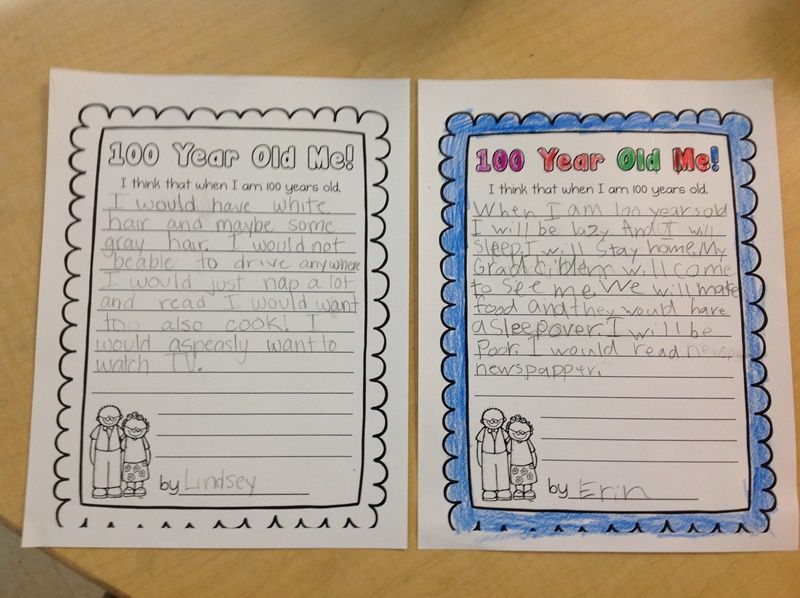 100 Year Old Me!
I think that when I am 100 years old,
I would have white
hair and maybe some
gray hair. I would not
beable to drive anywhere
I would just nap a lot
and read I would want
too also cook! I
would aspeasly want to
watch TV.
by Lindsey
100 Year Old Me!
I think that when I am 100 years old,
When I am 100 years old
I will be lazy. And I will
sleep. I will stay home. My
will come
to see me. We will make
food and they would have
a sleepover. I will be
Poor. I would read
newspapper.
by Erin